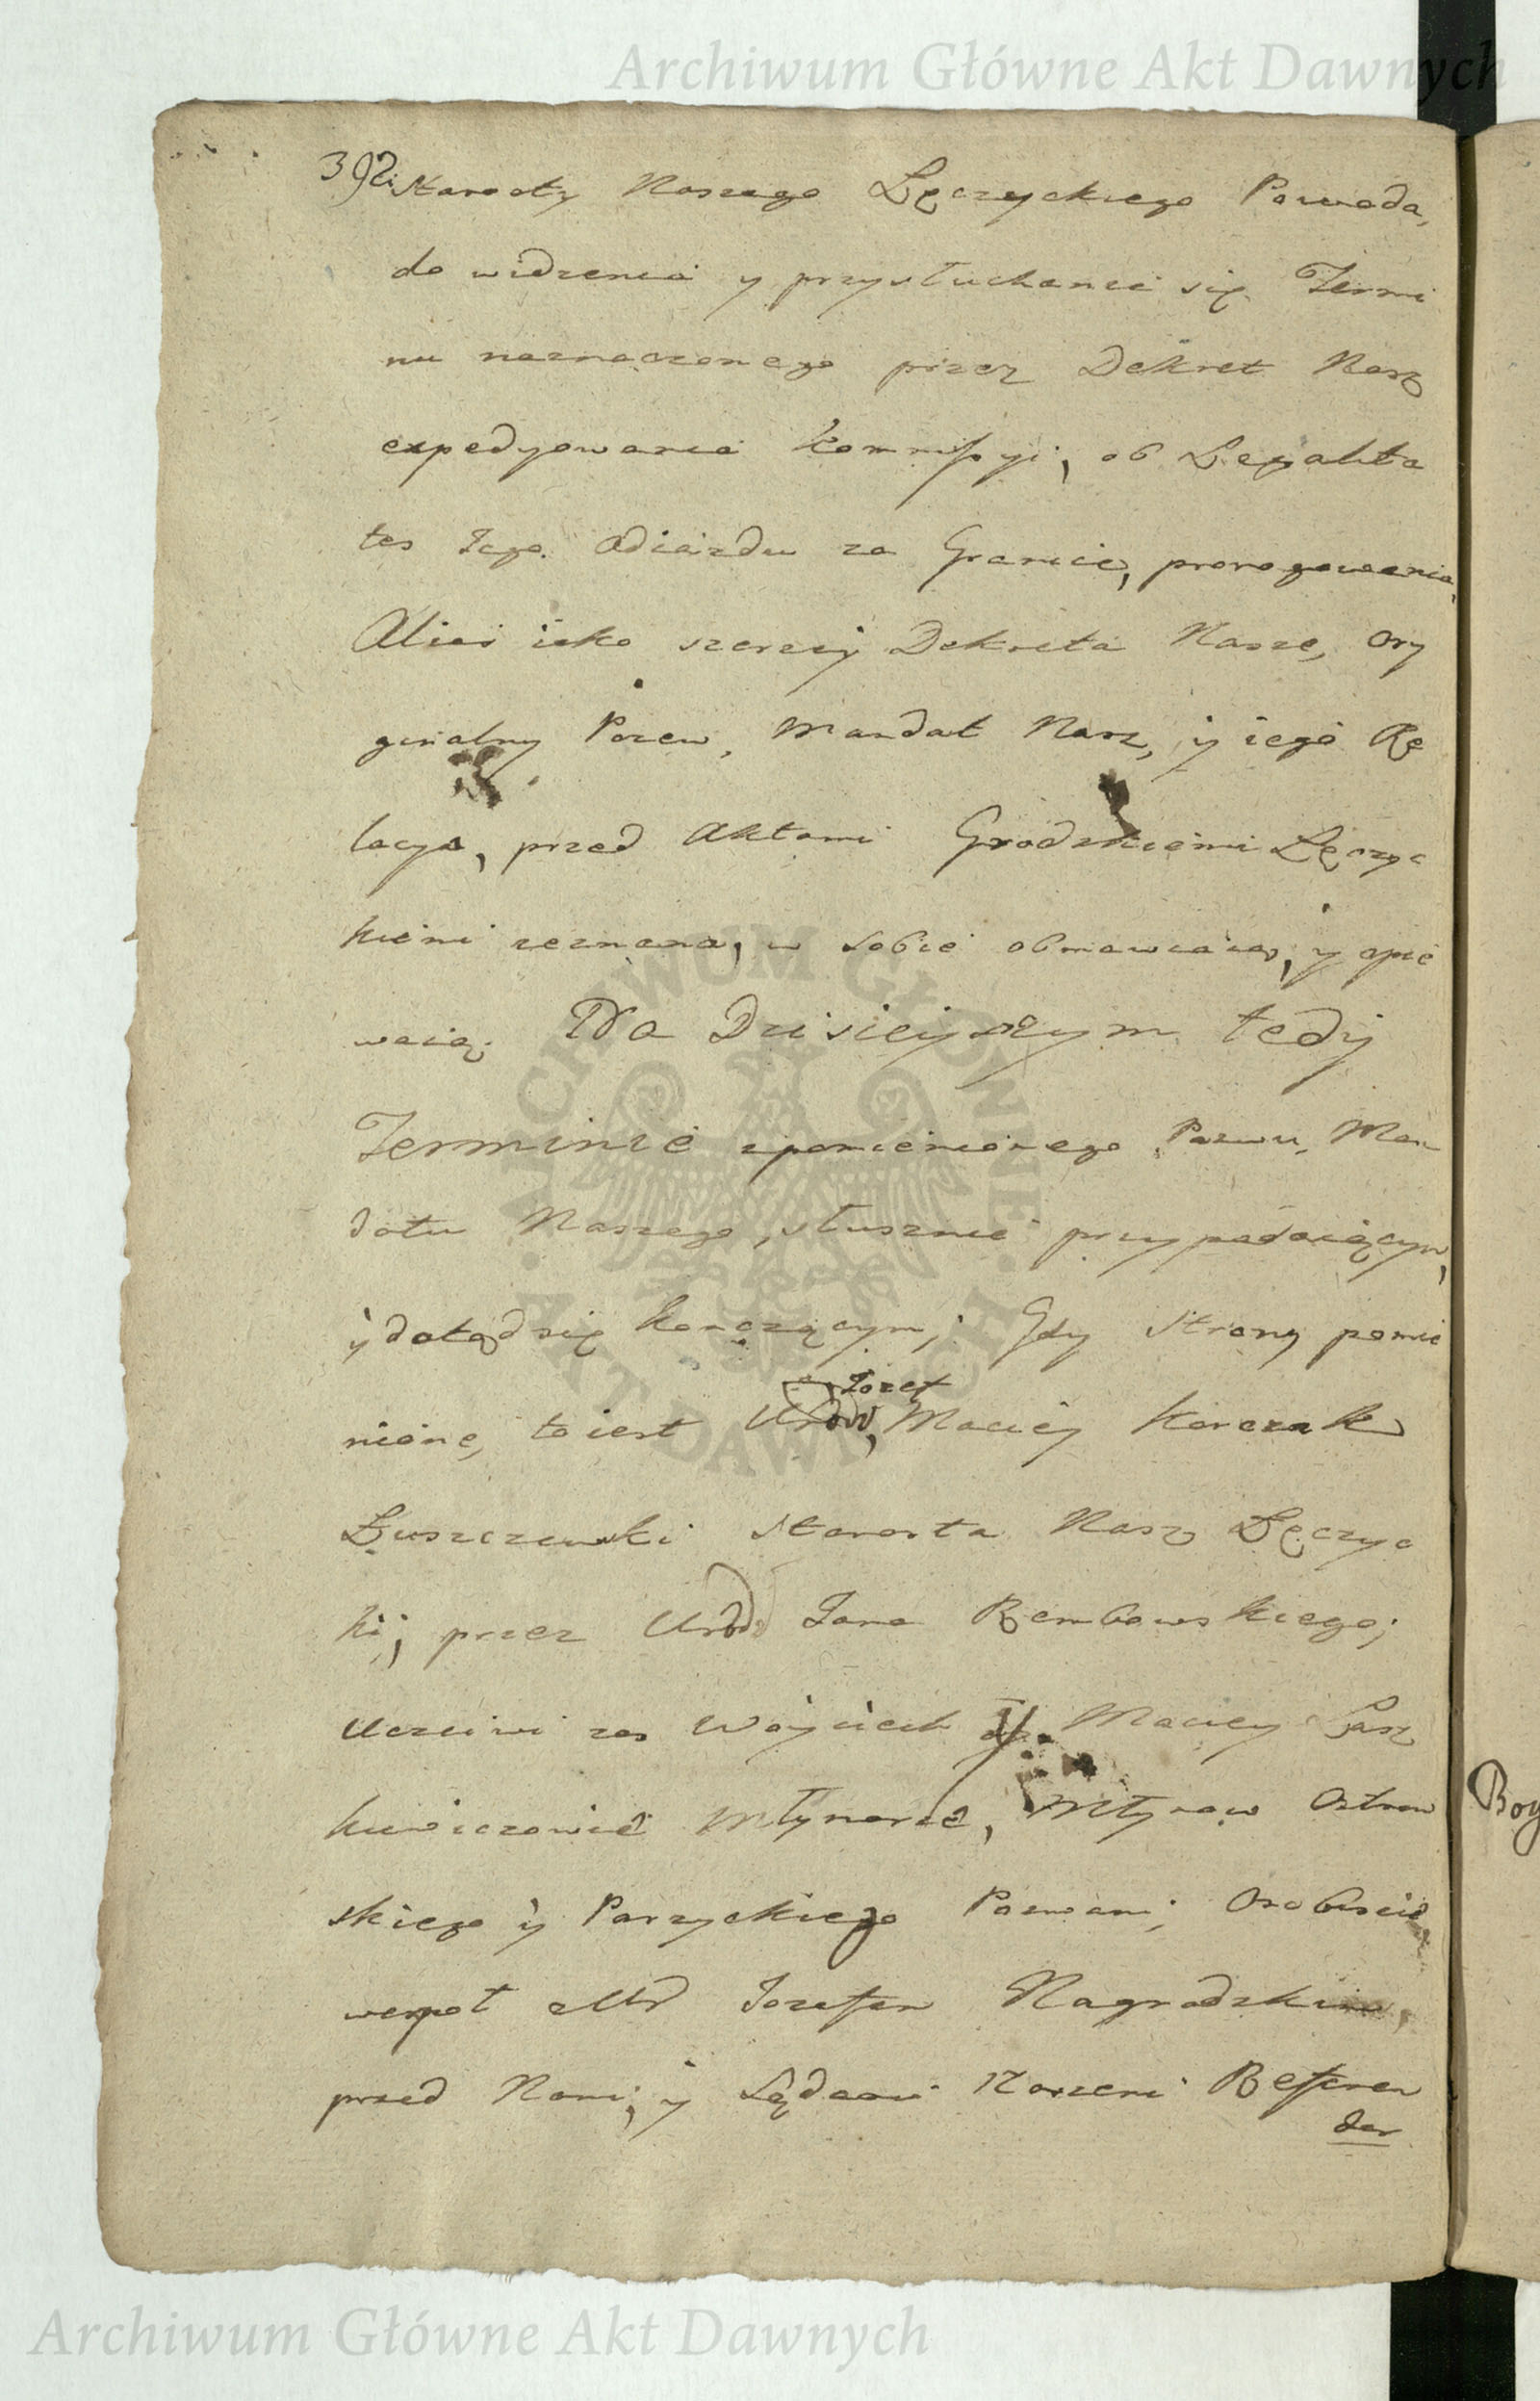 Archiwum Główne Akt Dawnych
392. Starosty Naszego Łęczyckiego Powoda,
do widzenia y przysłuchania się Termi
nu naznaczonego przez Dekret Nasz
expedyowania Kommissyi, ob Legalita
tes Jego Odiazdu za Granicę, prorogowania,
Alias iako szerzey Dekreta Nasze, Ory
ginalny Pozew, Mandat Nasz, y iego Re
lacya, przed Aktami Grodzkiemi Łęczyc
kiemi zeznana, w sobie obmawiaią, y opie
waią. Na Dzisieyszym tedy
Terminie zpomienionego Pozwu, Man
datu Naszego, słusznie przypadaiącym,
y dotąd się kończącym; Gdy Strony pomie
Jozef
nione, to iest Urod, Maciey Korczak
Łuszczewski Starosta Nasz Łęczyc
ki, przez Urod Jana Rembowskiego;
Uczciwi zas Woyciech y Maciey Pasz
kiewiczowie Młynarze, Młynow Ostrow
skiego y Parzyckiego Pozwani; Osobiscie
wespoł z Ur Jozefem Nagrodzkim,
przed Nami, y Sądami Naszemi Referen
dar
Boy
ARCHIWUM GŁÓWNE AKT DAWNYCH
Archiwum Główne Akt Dawnych